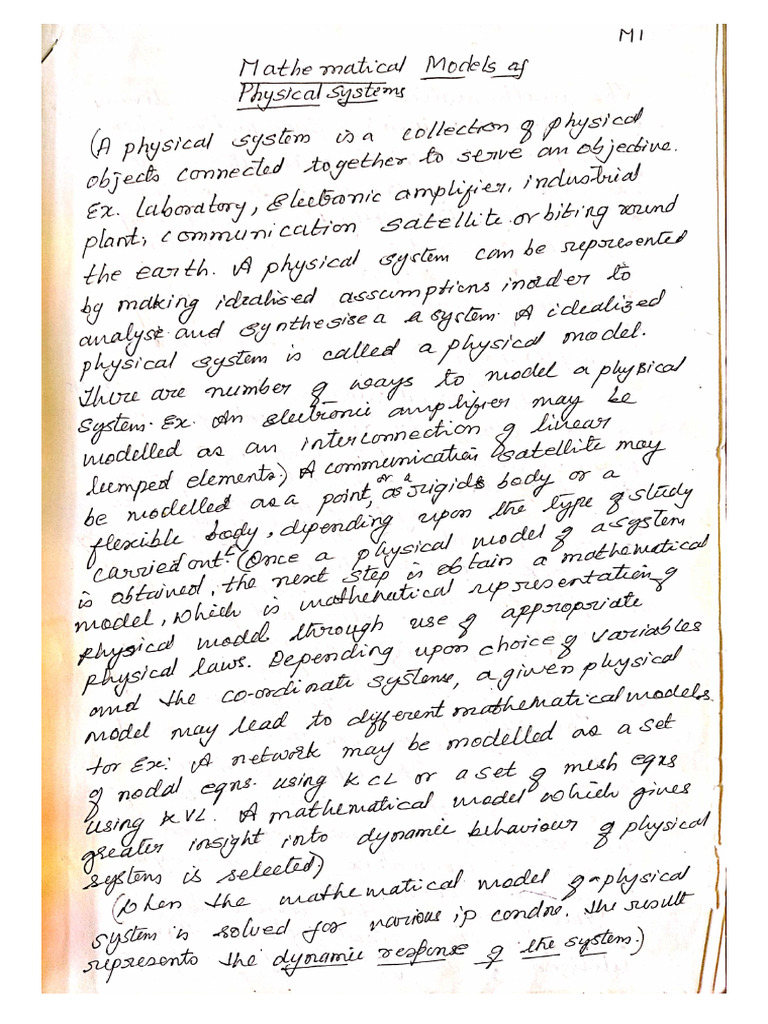 M1
Mathematical Models of
Physical systems
(A physical system is a collection of physical
objects connected together to serve an objective.
Ex. laboratory, Electronic amplifier, industrial
plant, communication satellite orbiting round
the earth. A physical system can be represented
by making idealised assumptions inorder to
analyse and synthesise a a system. A idealized
physical system is called a physical model.
There are number of ways to model a physical
system. Ex. An electronic amplifier may be
modelled as an interconnection of linear
lumped elements.) A communication satellite may
be modelled as a point, or as a rigid body or a
flexible body, depending upon the type of study
carried out. (Once a physical model of a system
is obtained, the next step is obtain a mathematical
model, which is mathematical representation of
physical model through use of appropriate
physical laws. Depending upon choice of variables
and the co-ordinate systems, a given physical
model may lead to different mathematical models.
for Ex: A network may be modelled as a set
of nodal eqns. using KCL or a set of mesh eqns
using KVL. A mathematical model which gives
greater insight into dynamic behaviour of physical
system is selected)
(When the mathematical model of a physical
system is solved for various ip condns. the result
represents the dynamic response of the system.)